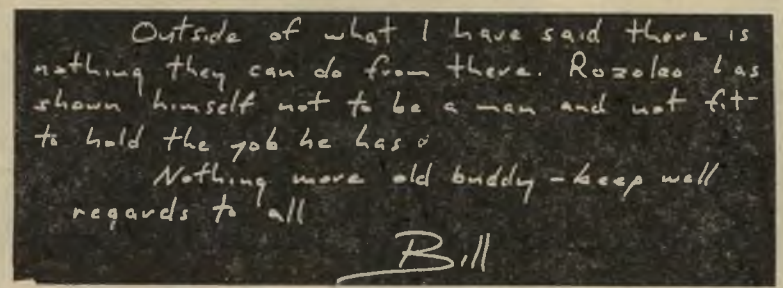 Outside of what I have said there is
nothing they can do from there. Rozoleo has
shown himself not to be a man and not fit-
to hold the job he has.
Nothing more old buddy - keep well
regards to all
Bill